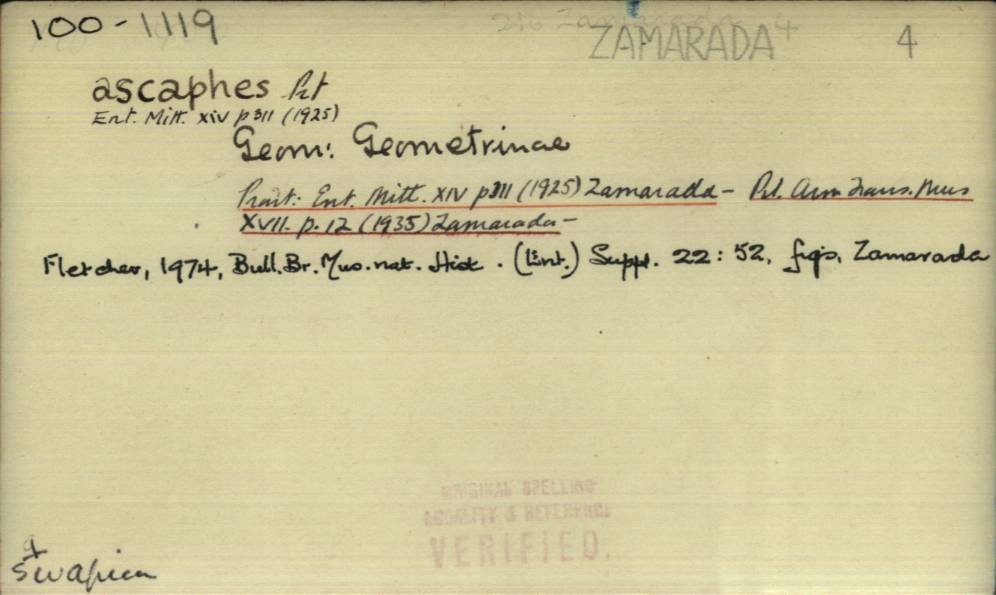 100-1119
ZAMARADA 4
4
ascaphes Prt
Ent. Mitt. XIV p 311 (1925)
Geom: Geometrinae
Prout: Ent. Mitt. XIV p311 (1925) Zamarada - Prt. Ann Trans. Mus
XVII. p. 12 (1935) Zamarada -
Fletcher, 1974, Bull. Br. Mus. nat. Hist. (Ent.) Suppl. 22: 52, figs, Zamarada
ORIGINAL SPELLING
LOCALITY & REFERENCE
VERIFIED.